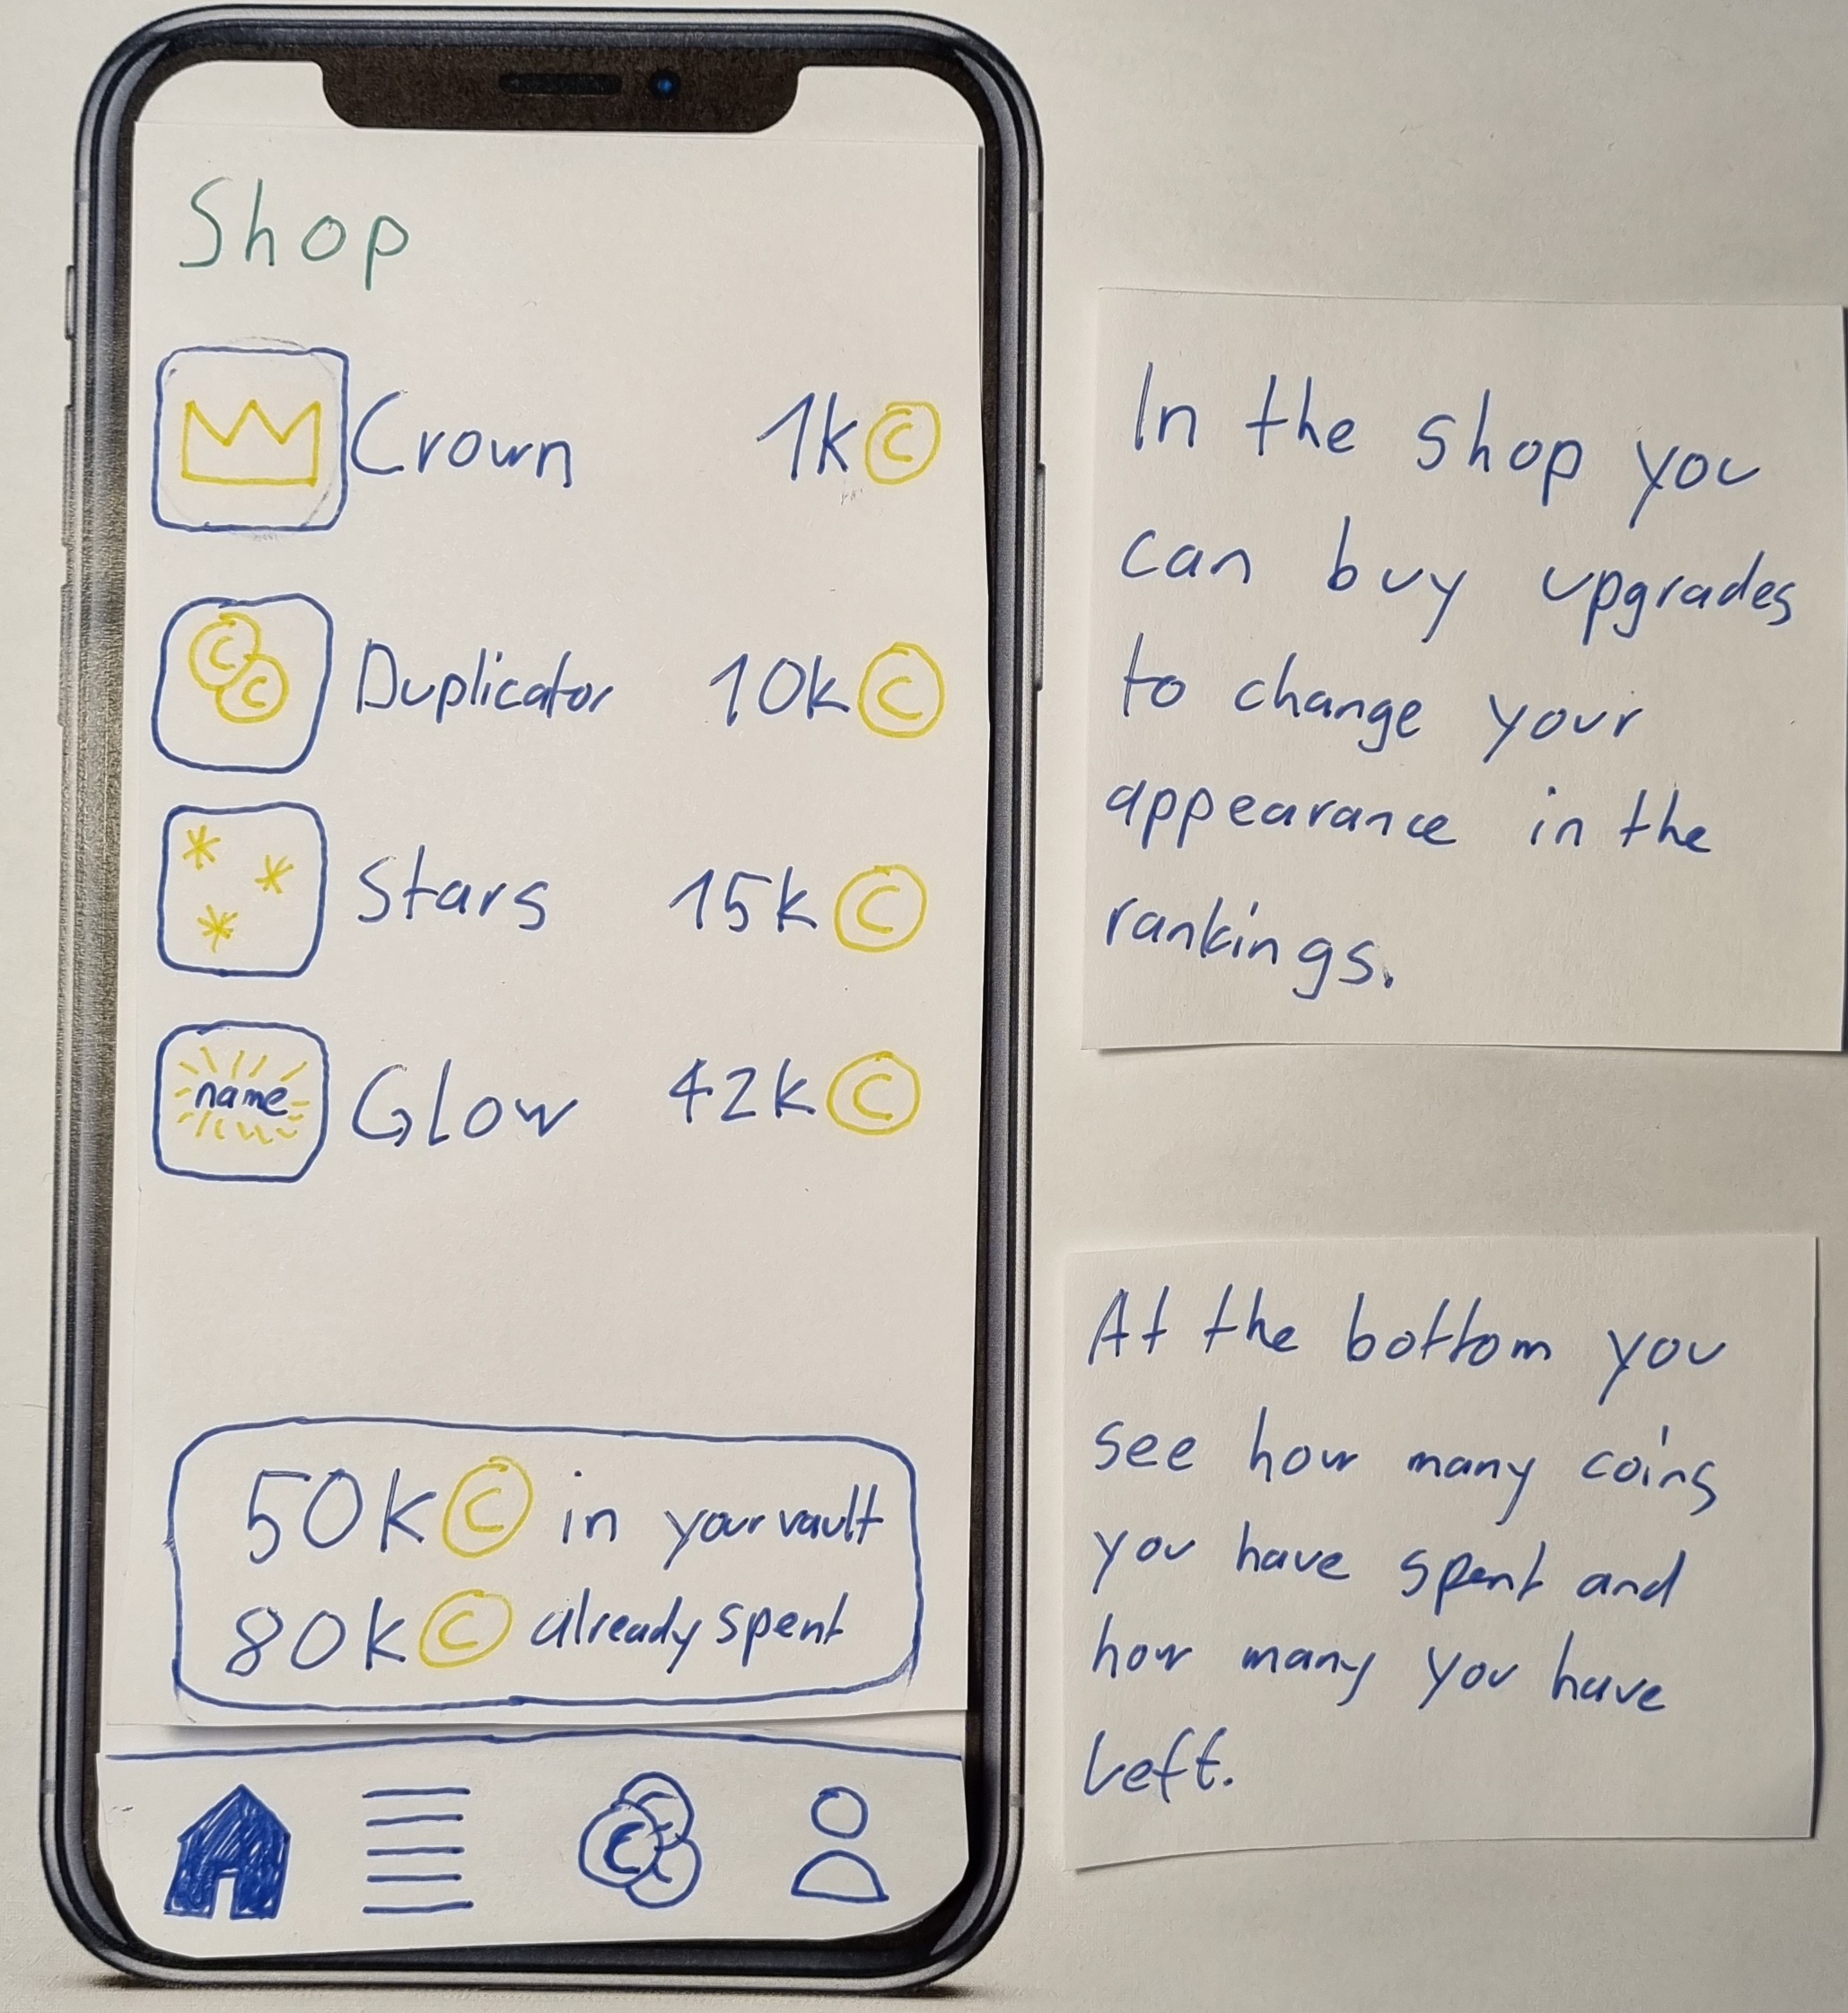 Shop
Crown 1k C
C C Duplicator 10k C
Stars 15k C
name Glow 42k C
50k C in your vault
80k C already spent
C
In the shop you
can buy upgrades
to change your
appearance in the
rankings.
At the bottom you
see how many coins
you have spent and
how many you have
left.